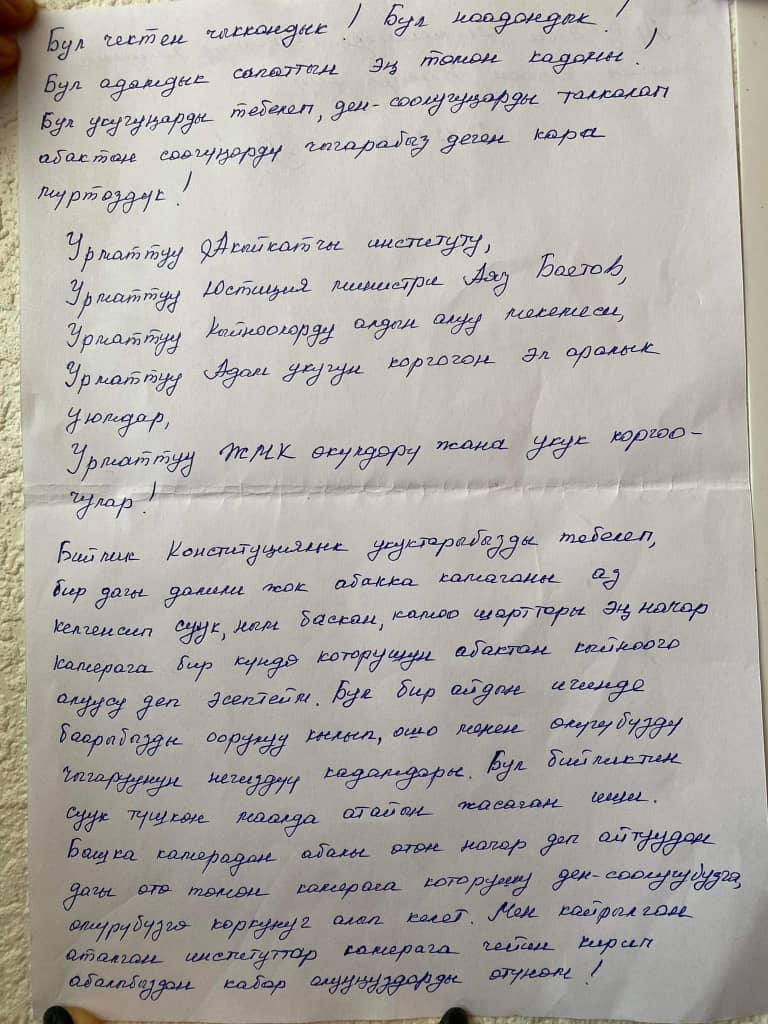 Бул чектен чыккандык! Бул наадандык!
Бул адамдык сапаттын эң төмөн кадамы!
Бул укугуңарды тебелеп, ден-соолугуңарды талкалап
абактан сөөгүңөрдү чыгарабыз деген кара
муртоздук!
Урматтуу Акыйкатчы институту,
Урматтуу Юстиция министри Аяз Баетов,
Урматтуу Кыйноолорду алдын алуу мекемеси,
Урматтуу Адам укугун коргогон эл аралык
уюмдар,
Урматтуу ЖМК өкүлдөрү жана укук коргоо-
чулар!
Бийлик Конституциялык укуктарыбызды тебелеп,
бир дагы далили жок абакка камаганы аз
келгенсип суук, ным баскан, камоо шарттары эң начар
камерага бир күндө которушун абактан кыйноого
алуусу деп эсептейм. Бул бир айдын ичинде
баарыбызды оорулуу кылып, ошо менен өлүгүбүздү
чыгаруунун негиздүү кадамдары. Бул бийликтин
суук түшкөн маалда атайын жасаган иши.
Башка камерадан абалы өтө начар деп айтуудан
дагы өтө төмөн камерага которушу ден-соолугубузга,
өмүрүбүзгө коркунуч алып келет. Мен кайрылган
аталган институттар камерага чейин кирип
абалыбыздан кабар алууңуздарды өтүнөм!